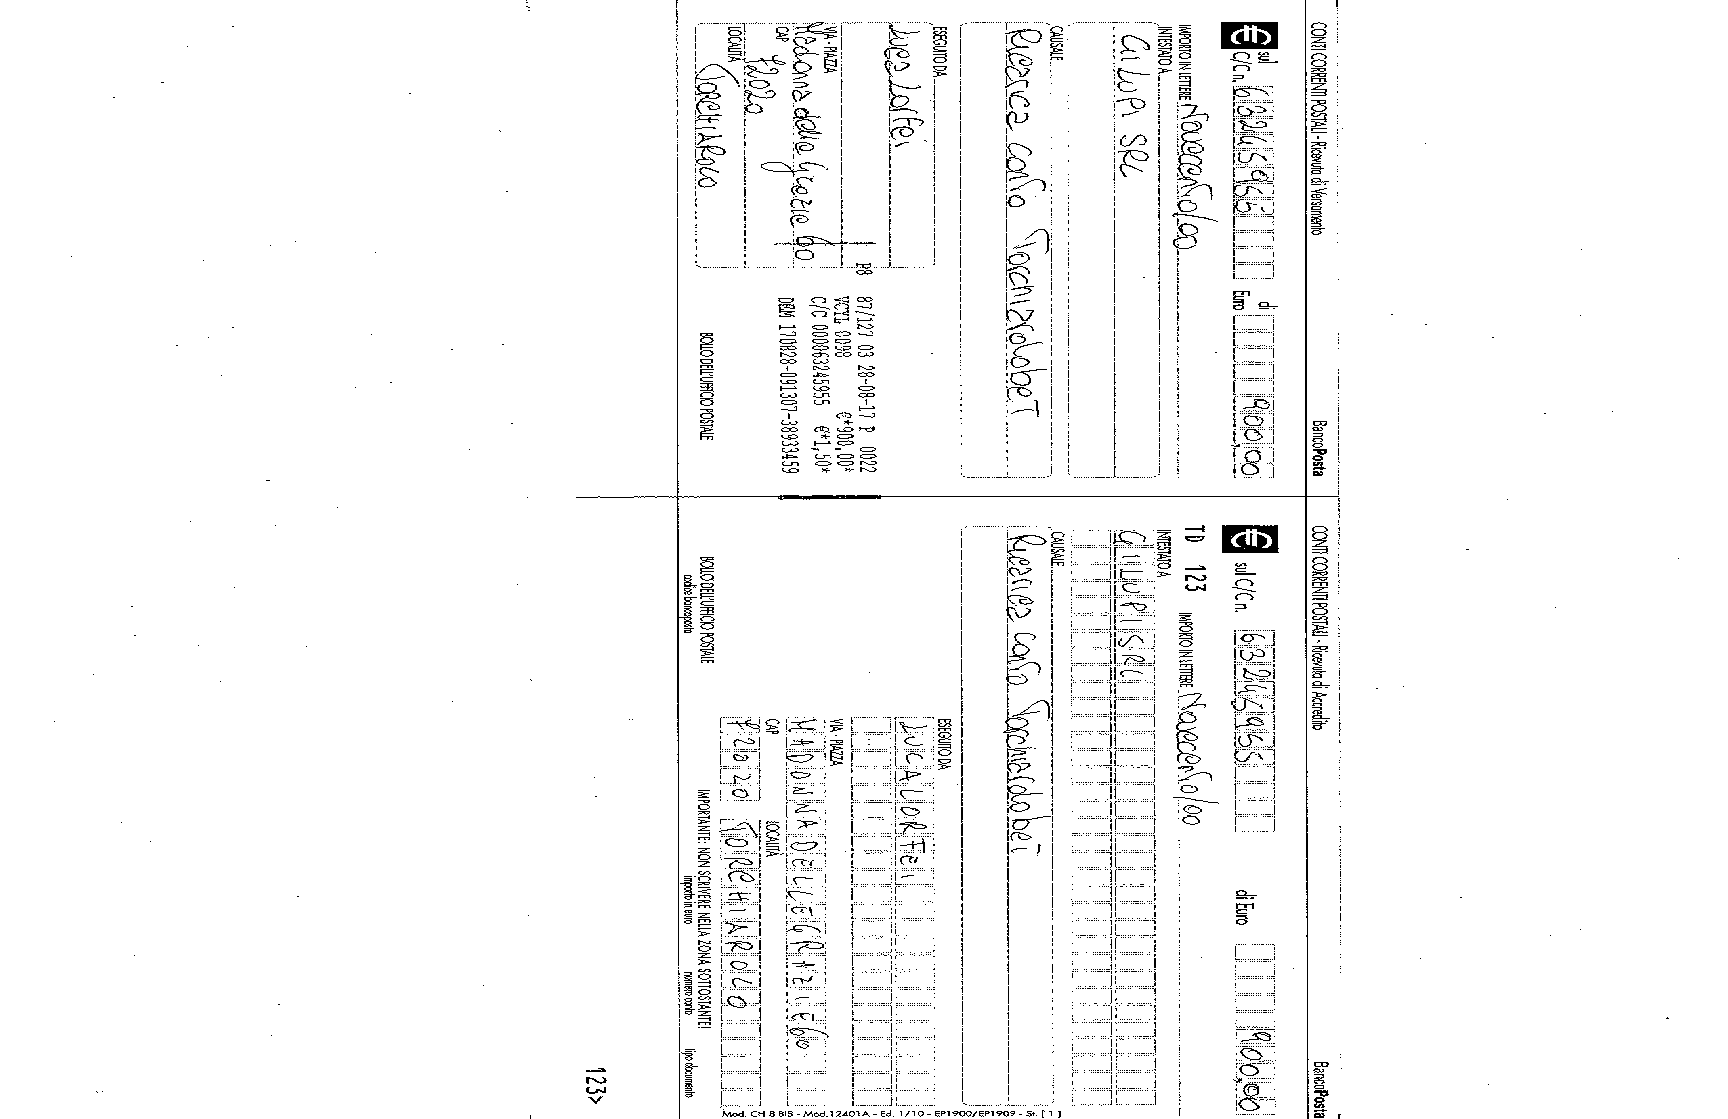 CONTI CORRENTI POSTALI - Ricevuta di Versamento
BancoPosta
sul C/C n. 63245955
di Euro 900,00
IMPORTO IN LETTERE Novecento/00
INTESTATO A
GILUPI SRL
CAUSALE
Ricarica conto Torchiarolobet
ESEGUITO DA
Luca Lorfei
VIA - PIAZZA
Madonna delle Grazie 60
CAP
72020
LOCALITÀ
TORCHIAROLO
P8
87/127 03 28-08-17 P 0022
VCYL 0098 €*900,00*
C/C 000063245955 €*1,50*
DEM 170828-091307-38933459
BOLLO DELL'UFFICIO POSTALE
CONTI CORRENTI POSTALI - Ricevuta di Accredito
BancoPosta
sul C/C n. 63245955
di Euro 900,00
TD 123 IMPORTO IN LETTERE Novecento/00
INTESTATO A
GILUPI SRL
CAUSALE
Ricarica conto
ESEGUITO DA
LUCA LORFEI
VIA - PIAZZA
MADONNA DELLE GRAZIE 60
CAP
72020
LOCALITÀ
TORCHIAROLO
BOLLO DELL'UFFICIO POSTALE
codice bancoposta
IMPORTANTE: NON SCRIVERE NELLA ZONA SOTTOSTANTE!
importo in euro
numero conto
tipo documento
123>
Mod. CH 8 BIS - Mod.12401A - Ed. 1/10 - EP1900/EP1909 - St. [1]